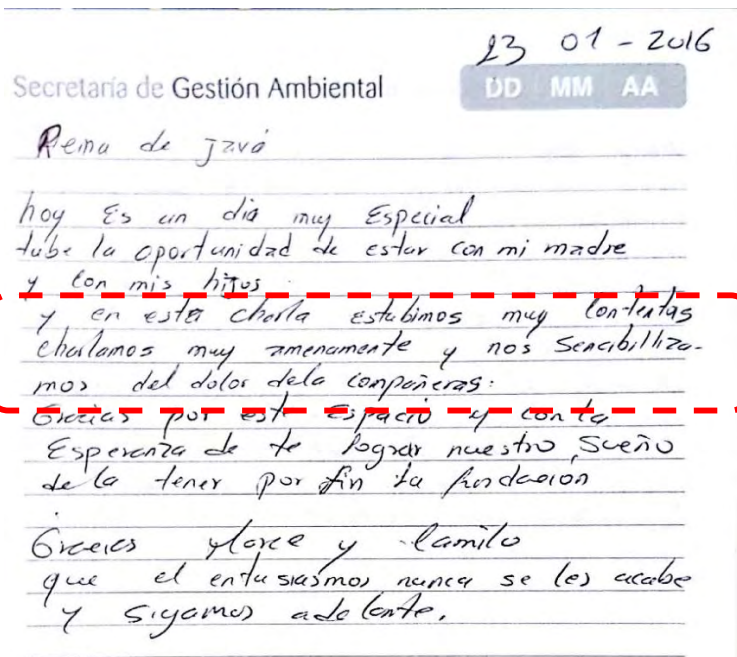 23 01 - 2016
Secretaría de Gestión Ambiental
DD MM AA
Reina de javá
hoy Es un dia muy Especial
tube la oportunidad de estar con mi madre
y con mis hijos.
y en esta charla estubimos muy contentas
charlamos muy amenamente y nos sencibilliza-
mos del dolor dela compañeras.
Gracias por este Espacio y con la
Esperanza de te lograr nuestro sueño
de la tener por fin la fundacion
Gracias y Camilo
que el entusiasmos nunca se les acabe
y sigamos adelante.